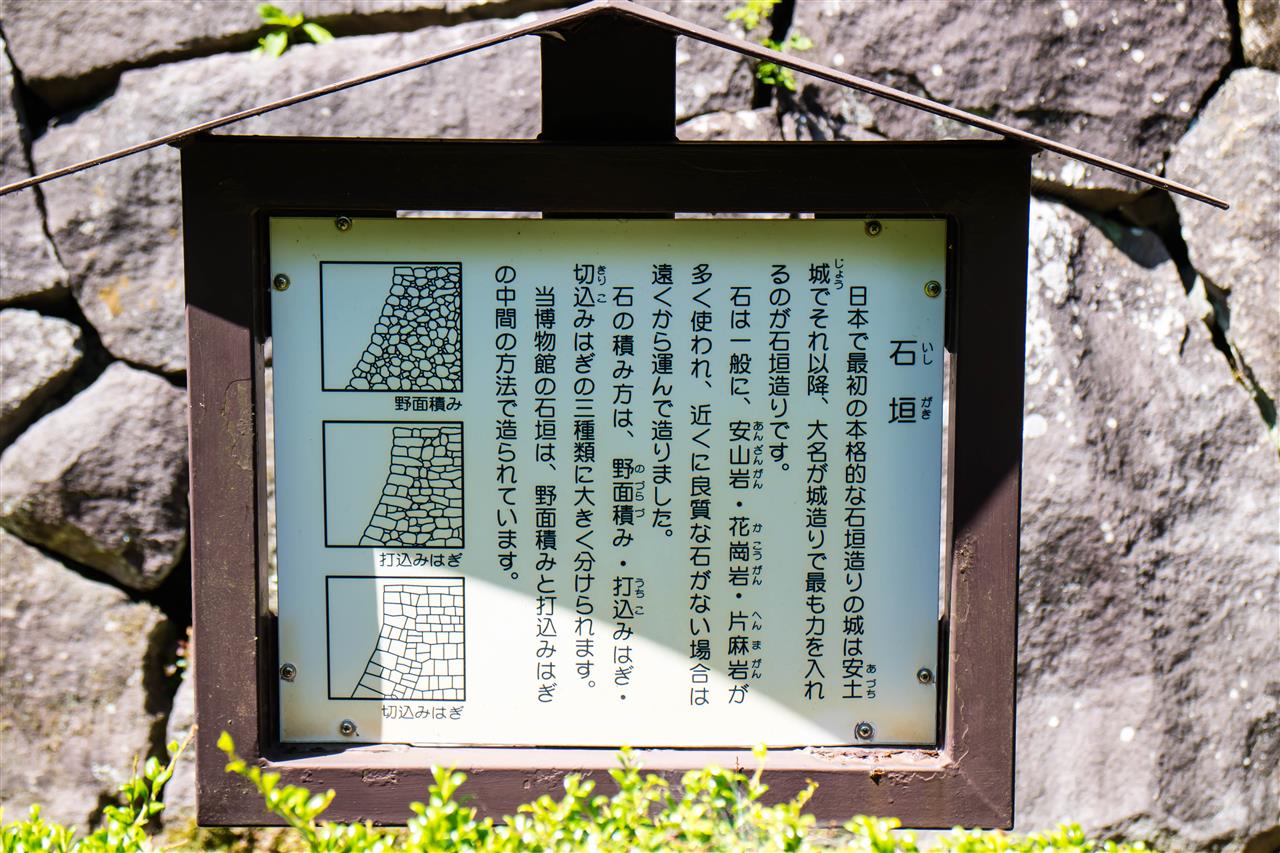 石垣
いしがき
日本で最初の本格的な石垣造りの城は安土
あづち
城でそれ以降、大名が城造りで最も力を入れ
じょう
るのが石垣造りです。
石は一般に、安山岩・花崗岩・片麻岩が
あんざんがん
かこうがん
へんまがん
多く使われ、近くに良質な石がない場合は
遠くから運んで造りました。
石の積み方は、野面積み・打込みはぎ・
のづらづ
うちこ
切込みはぎの三種類に大きく分けられます。
きりこ
当博物館の石垣は、野面積みと打込みはぎ
の中間の方法で造られています。
野面積み
打込みはぎ
切込みはぎ